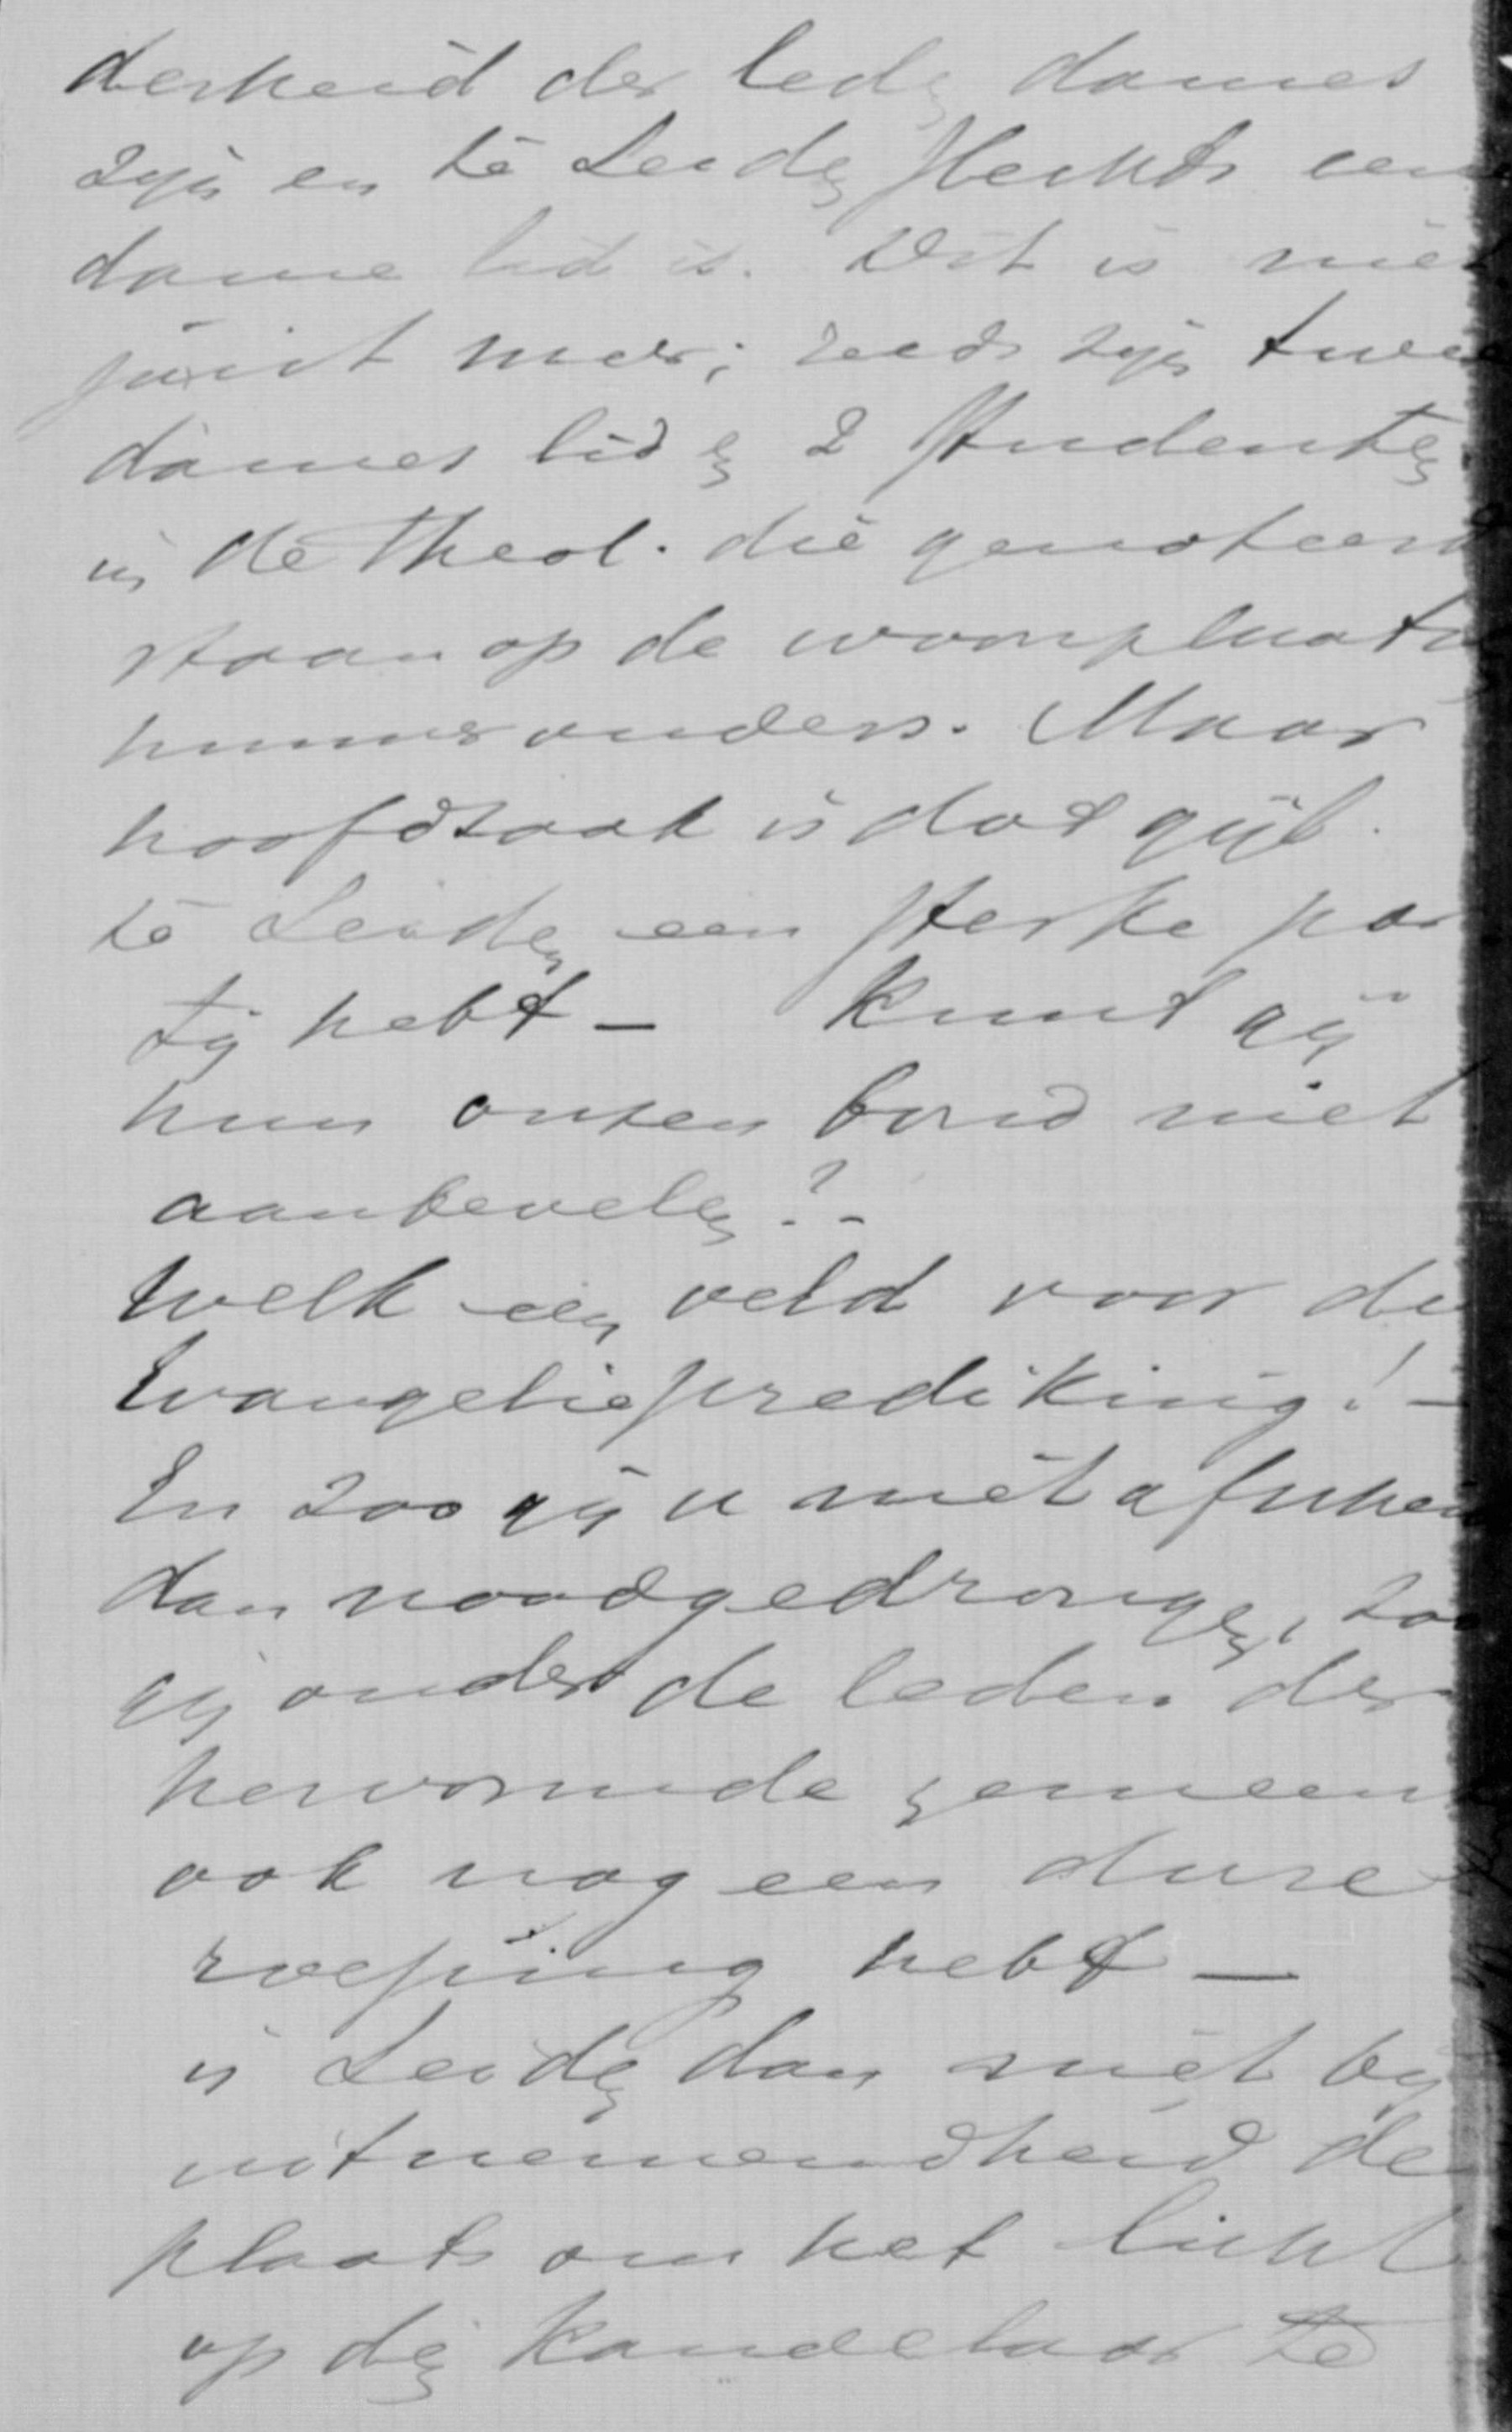 derheid der leden dames
zijn en te Leiden slechts een
dame lid is. Dit is niet
juist meer; reeds zijn twee
dames lid en 2 studenten
in de Theol. die genoteerd
staan op de woonplaats
hunner ouders. Maar
hoofdzaak is dat gijl.
te Leiden een sterke par
tij hebt — Kunt gij
hun onzen bond niet
aanbevelen? -
Welk een veld voor de
Evangelieprediking! -
En zoo gij u niet afscheidt
dan noodgedrongen, zoo
gij onder de leden der
hervormde gemeente
ook nog een dure
roeping hebt —
is Leiden dan niet bij
uitnemendheid de
plaats om het licht
op den kandelaar te